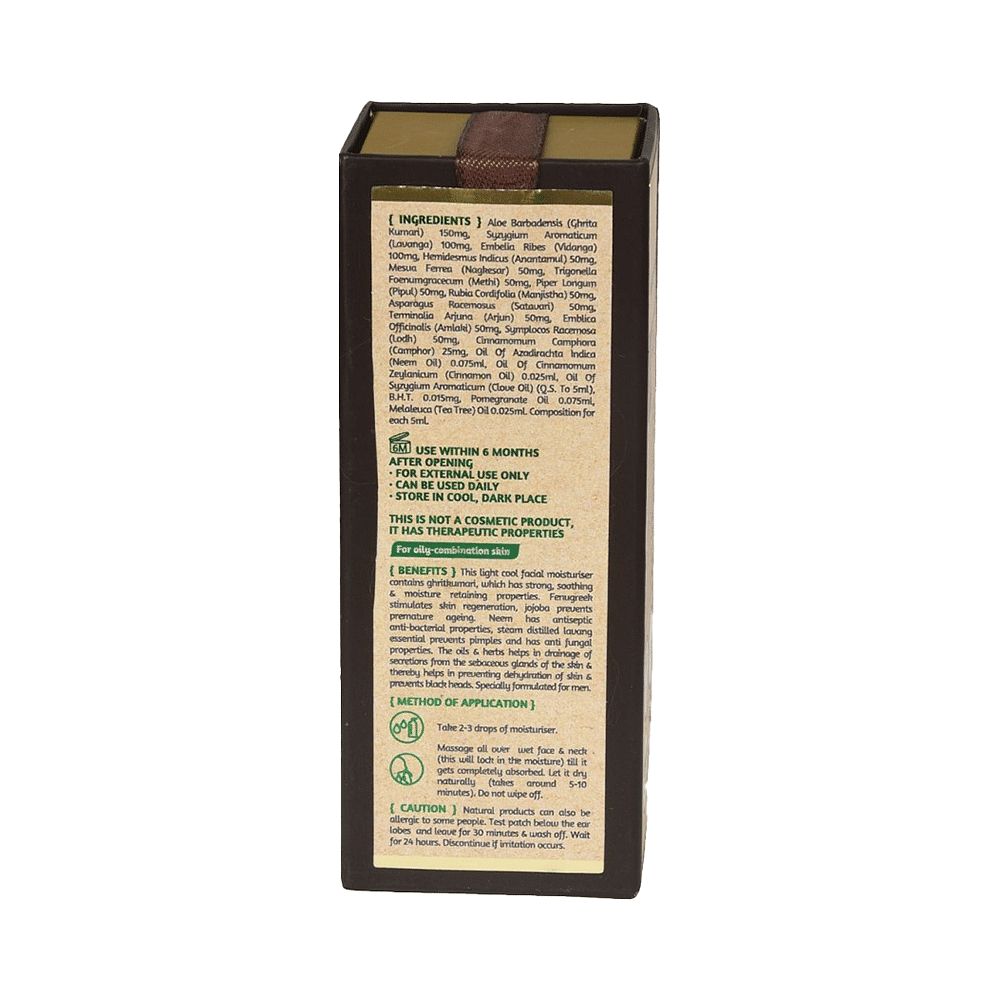 { INGREDIENTS } Aloe Barbadensis (Ghrita
Kumari) 150mg, Syzygium Aromaticum
(Lavanga) 100mg, Embelia Ribes (Vidanga)
100mg, Hemidesmus Indicus (Anantamul) 50mg,
Mesua Ferrea (Nagkesar) 50mg, Trigonella
Foenumgracecum (Methi) 50mg, Piper Longum
(Pipul) 50mg, Rubia Cordifolia (Manjistha) 50mg,
Asparagus Racemosus (Satavari) 50mg,
Terminalia Arjuna (Arjun) 50mg, Emblica
Officinalis (Amlaki) 50mg, Symplocos Racemosa
(Lodh) 50mg, Cinnamomum Camphora
(Camphor) 25mg, Oil Of Azadirachta Indica
(Neem Oil) 0.075ml, Oil Of Cinnamomum
Zeylanicum (Cinnamon Oil) 0.025ml, Oil Of
Syzygium Aromaticum (Clove Oil) (Q.S. To 5ml),
B.H.T. 0.015mg, Pomegranate Oil 0.075ml,
Melaleuca (Tea Tree) Oil 0.025ml. Composition for
each 5ml.
6M USE WITHIN 6 MONTHS
AFTER OPENING
· FOR EXTERNAL USE ONLY
· CAN BE USED DAILY
· STORE IN COOL, DARK PLACE
THIS IS NOT A COSMETIC PRODUCT,
IT HAS THERAPEUTIC PROPERTIES
For oily-combination skin
{ BENEFITS } This light cool facial moisturiser
contains ghritkumari, which has strong, soothing
& moisture retaining properties. Fenugreek
stimulates skin regeneration, jojoba prevents
premature ageing. Neem has antiseptic
anti-bacterial properties, steam distilled lavang
essential prevents pimples and has anti fungal
properties. The oils & herbs helps in drainage of
secretions from the sebaceous glands of the skin &
thereby helps in preventing dehydration of skin &
prevents black heads. Specially formulated for men.
{ METHOD OF APPLICATION }
Take 2-3 drops of moisturiser.
Massage all over wet face & neck
(this will lock in the moisture) till it
gets completely absorbed. Let it dry
naturally (takes around 5-10
minutes). Do not wipe off.
{ CAUTION } Natural products can also be
allergic to some people. Test patch below the ear
lobes and leave for 30 minutes & wash off. Wait
for 24 hours. Discontinue if irritation occurs.